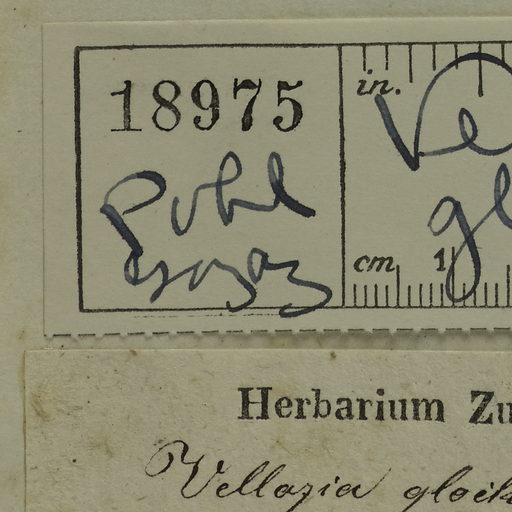 18975
Pohl
in.
Ve
gl
cm 1
Herbarium Zu
Vellozia glock